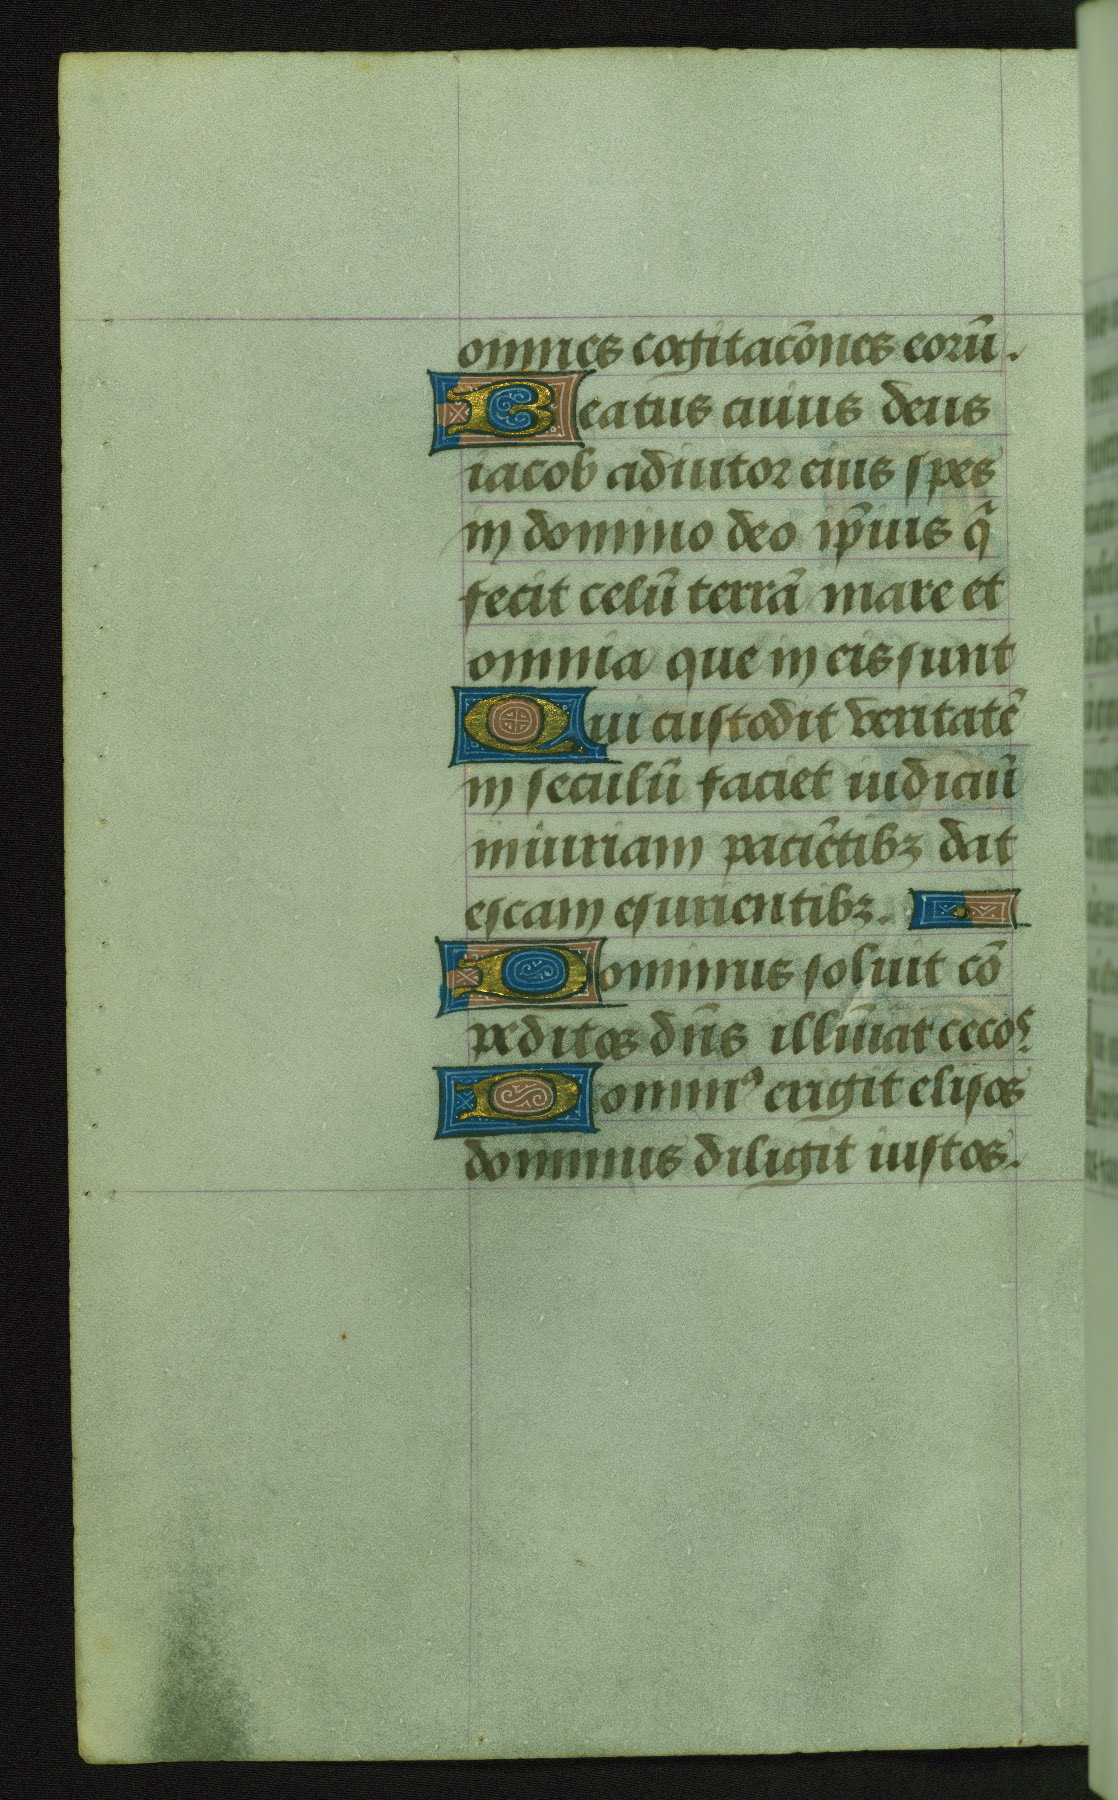 omnes cogitacōnes eorū.
Beatus cuius deus
iacob adiutor eius spes
in domino deo ip̄ius q̄
fecit celū terrā mare et
omnia que in eis sunt
Qui custodit veritatē
in seculū faciet iudiciū
iniuriam paciētibꝫ dat
escam esurientibꝫ.
Dominus soluit cō
peditos dn̄s illūīat cecos
Dominꝰ erigit elisos
dominus diligit iustos.